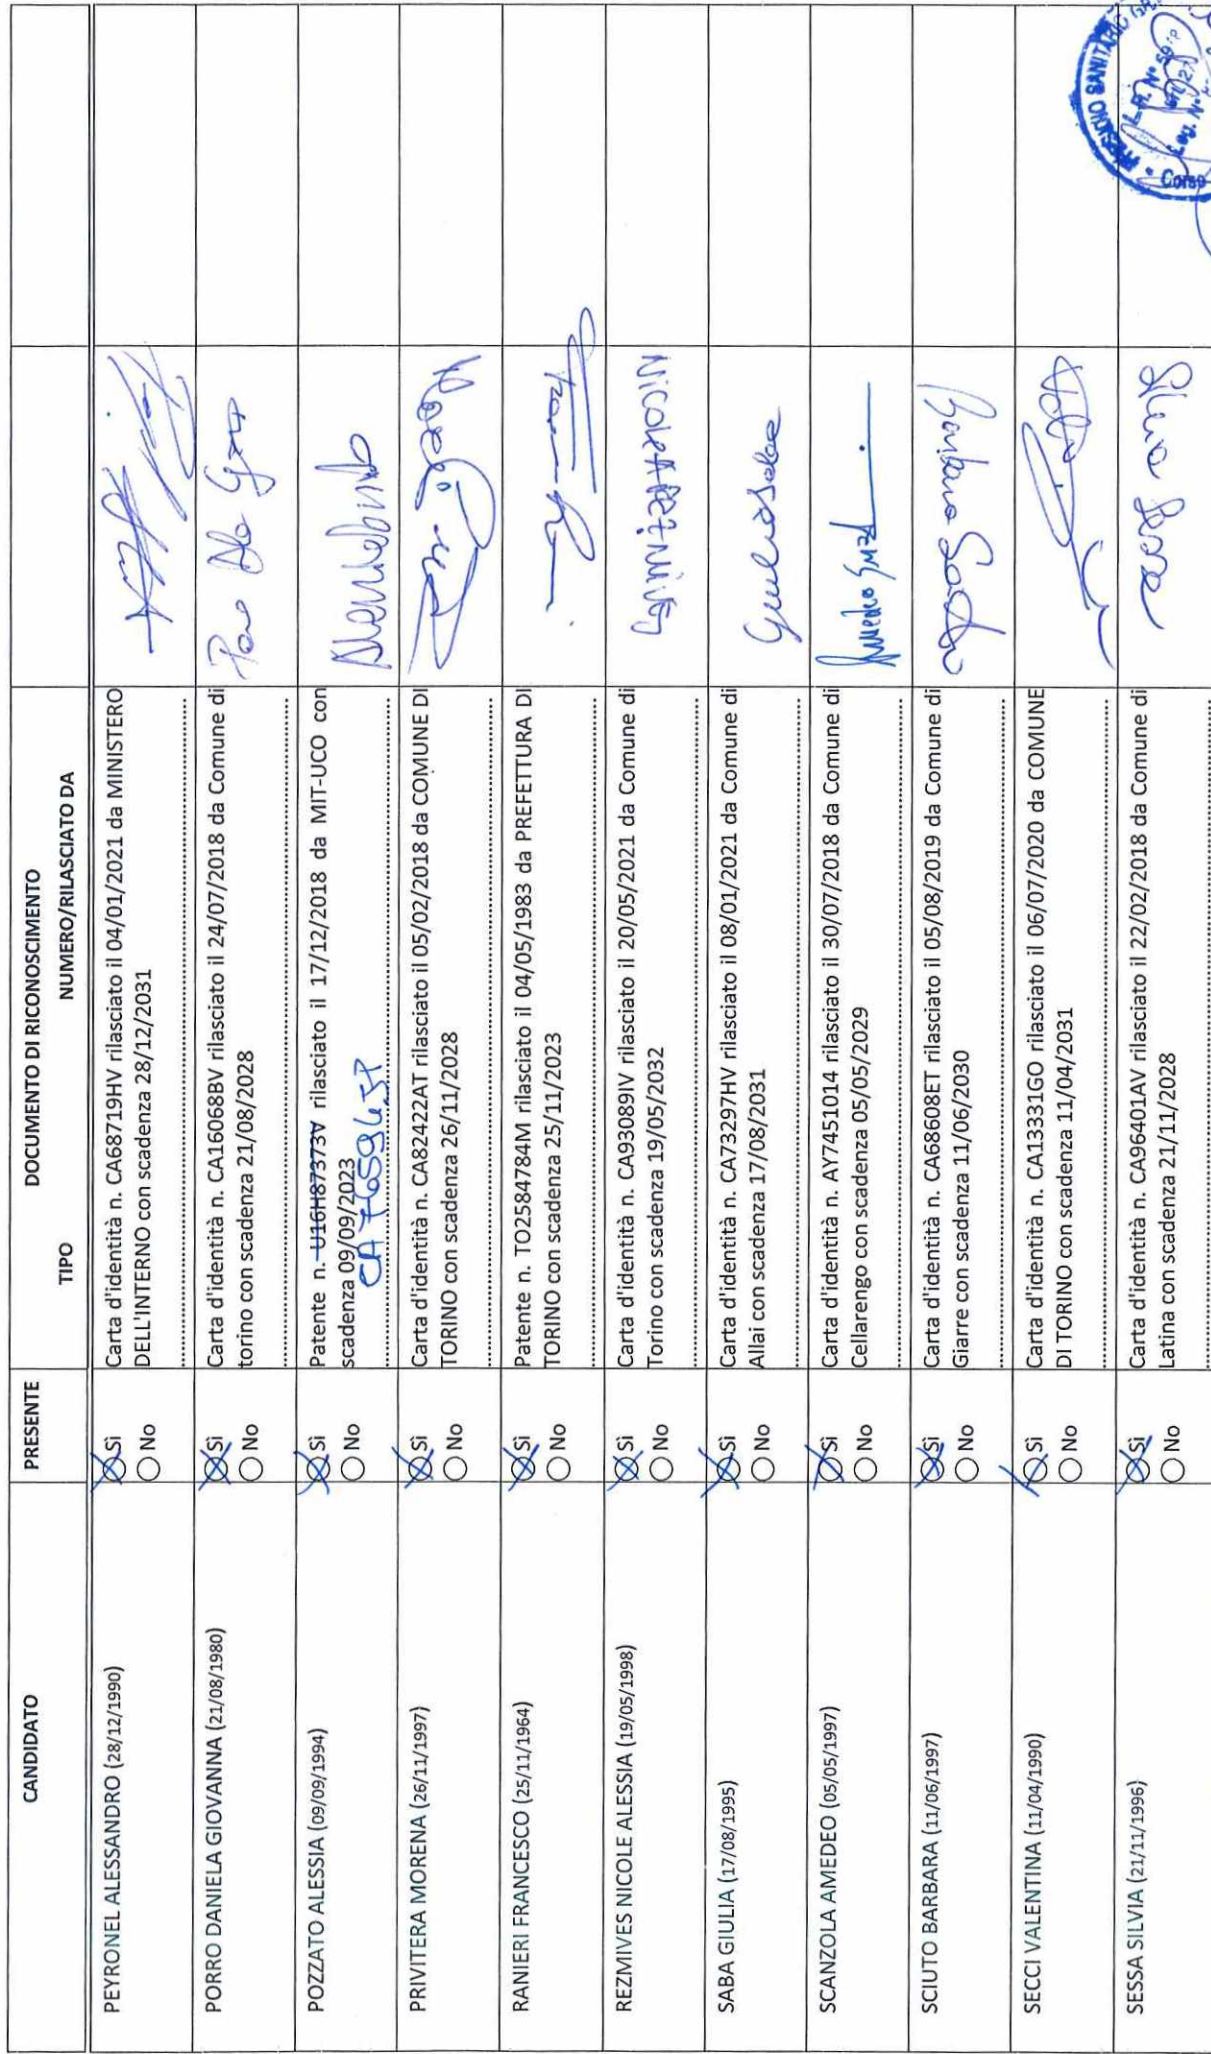 CANDIDATO
PRESENTE
DOCUMENTO DI RICONOSCIMENTO
TIPO NUMERO/RILASCIATO DA
PEYRONEL ALESSANDRO (28/12/1990)
Sì
No
Carta d'identità n. CA68719HV rilasciato il 04/01/2021 da MINISTERO
DELL'INTERNO con scadenza 28/12/2031
PORRO DANIELA GIOVANNA (21/08/1980)
Sì
No
Carta d'identità n. CA16068BV rilasciato il 24/07/2018 da Comune di
torino con scadenza 21/08/2028
POZZATO ALESSIA (09/09/1994)
Sì
No
Patente n. U16H87373V rilasciato il 17/12/2018 da MIT-UCO con
scadenza 09/09/2023
PRIVITERA MORENA (26/11/1997)
Sì
No
Carta d'identità n. CA82422AT rilasciato il 05/02/2018 da COMUNE DI
TORINO con scadenza 26/11/2028
RANIERI FRANCESCO (25/11/1964)
Sì
No
Patente n. TO2584784M rilasciato il 04/05/1983 da PREFETTURA DI
TORINO con scadenza 25/11/2023
REZMIVES NICOLE ALESSIA (19/05/1998)
Sì
No
Carta d'identità n. CA93089IV rilasciato il 20/05/2021 da Comune di
Torino con scadenza 19/05/2032
SABA GIULIA (17/08/1995)
Sì
No
Carta d'identità n. CA73297HV rilasciato il 08/01/2021 da Comune di
Allai con scadenza 17/08/2031
Giulia Saba
SCANZOLA AMEDEO (05/05/1997)
Sì
No
Carta d'identità n. AY7451014 rilasciato il 30/07/2018 da Comune di
Cellarengo con scadenza 05/05/2029
SCIUTO BARBARA (11/06/1997)
Sì
No
Carta d'identità n. CA68608ET rilasciato il 05/08/2019 da Comune di
Giarre con scadenza 11/06/2030
Barbara Sciuto
SECCI VALENTINA (11/04/1990)
Sì
No
Carta d'identità n. CA13331GO rilasciato il 06/07/2020 da COMUNE
DI TORINO con scadenza 11/04/2031
SESSA SILVIA (21/11/1996)
Sì
No
Carta d'identità n. CA96401AV rilasciato il 22/02/2018 da Comune di
Latina con scadenza 21/11/2028
Silvia Sessa
PRESIDIO SANITARIO
Corso